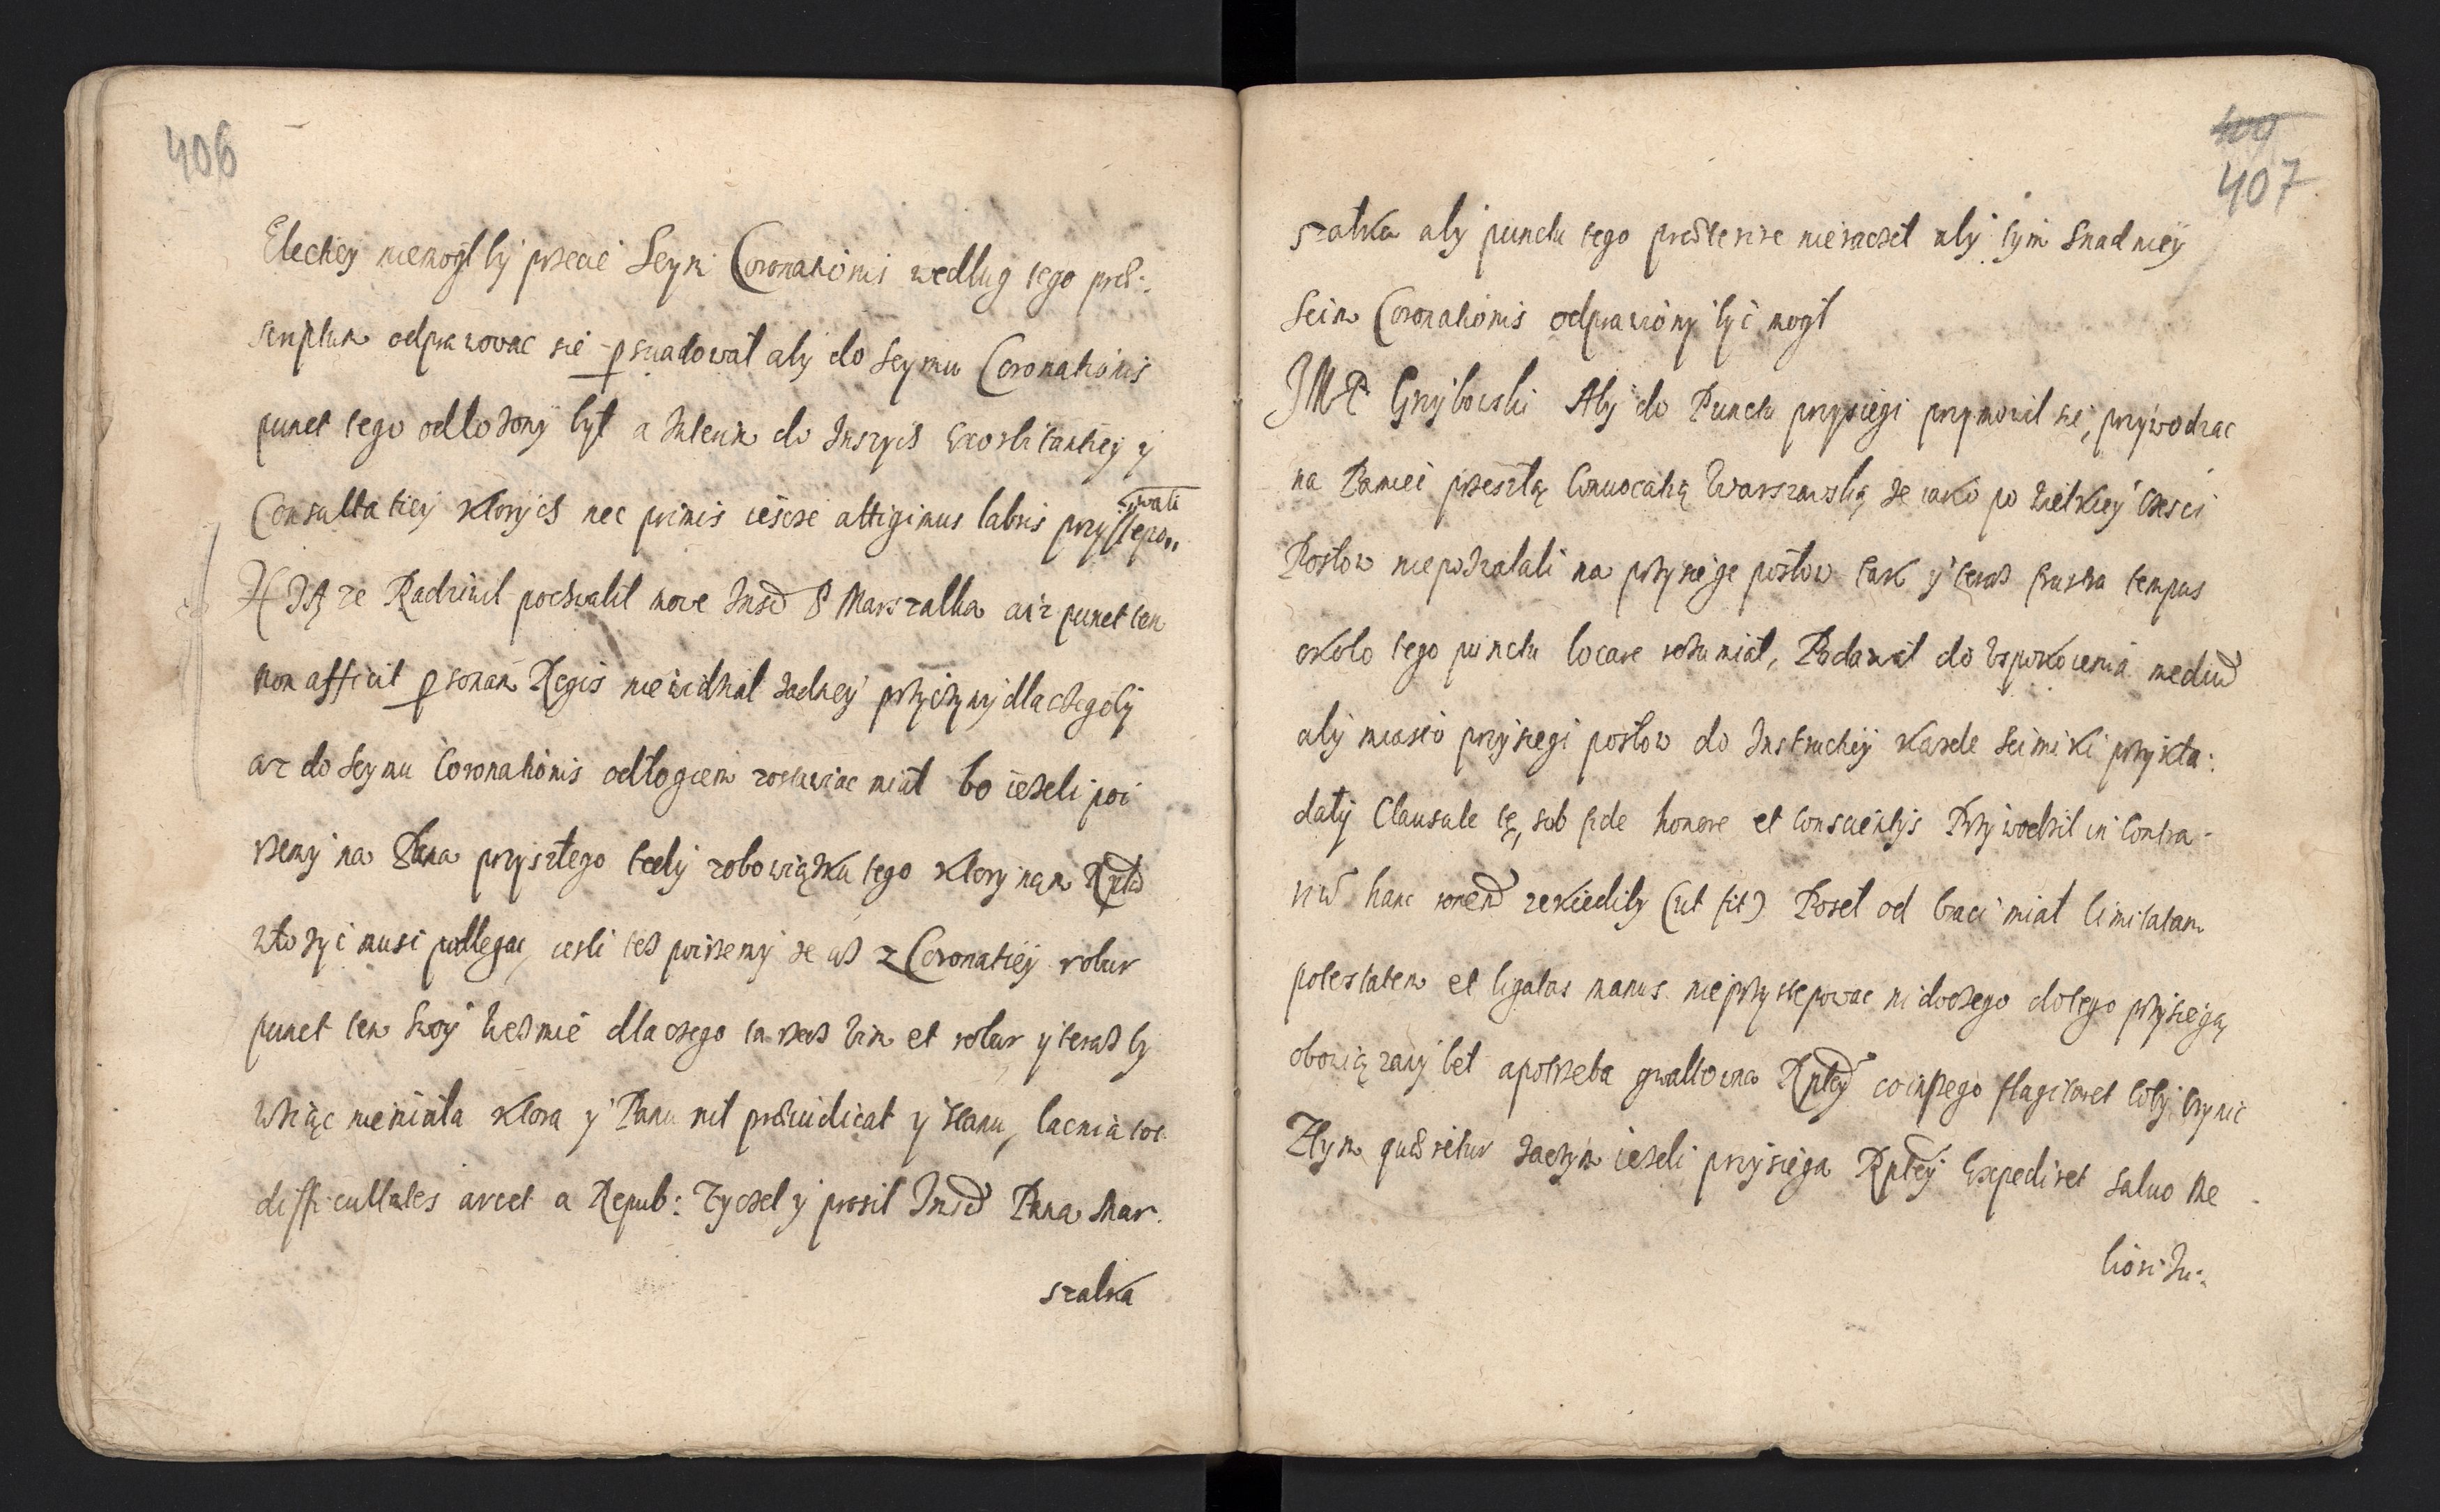 406
Electiey niemogl by przecie Seym Coronationis według tego præ:
scriptum odprawowac się psuadował aby do Seymu Coronationis
punct tego odłozony był a Interim do Inszych Exorbitantiey y
Consultatiey ktorych nec primis iescze attigimus labris przystępo„
wali
Xże Radziwił pochwalił mowe Jmsci P Marszałka aiz punct ten
non afficit psonam Regis niewidział zadney przyczyny dla czegoby
az do Seymu Coronationis odłogiem zostawiac miał bo iezeli poi
rzemy na Pana przyszłego tedy zobowiązku tego ktory nan Rptą
włozyc musi podlegac, iesli tez poirzemy ze az z Coronatiey robur
punct ten swoy wezmie dla czego ta rzecz vim et robur y teraz by
wziąc niemiała ktora y Panu nil præiudicat y stanu, lacnia tot
difficultates arcet a Repub: zyczel y prosil Jmsci Pana Mar.
szalka
409
407
szałka aby punctu tego præterire nieraczel aby tym snadniey
Seim Coronationis odprawiony byc mogł
JMP Grzybowski Aby do Punctu przysiegi przymowil sie, przywodzac
na Pamiec przeszłą Conuocatią Warszawską ze iako po wielkiey czesci
Posłow niepozwalali na przysięge posłow tak y teraz frustra tempus
około tego punctu locare rozumiał, Podawał do Uspokoienia mediu
aby miasto przysiegi posłow do Instructiey kazde Seimiki przykła:
dały Clausule tę, sub fide honore et conscientys Przywodził in contra-
riu hanc ronem ze kiedyby (ut fit) Poseł od braci miał limitatam
potestatem et ligatas manus nieprzystepowac nidoczego dotego przysięgą
obowiązany beł a potrzeba gwałtowna Rptey co inszego flagitaret coby czynic
Ztym quæritur zaczym iezeli przysięga Rptey Expediret saluo Me
liori Iu: